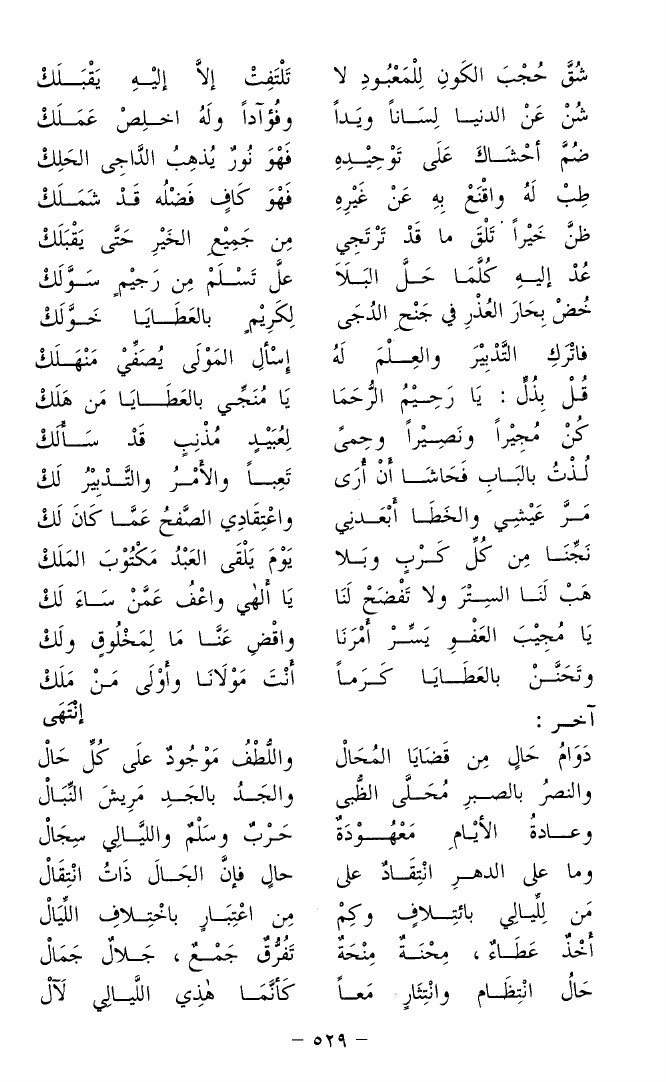 شُقَّ حُجْبَ الكَونِ لِلْمَعْبُودِ لا تَلْتَفِتْ إلاَّ إلَيْهِ يَقْبَلَكْ
صُنْ عَنْ الدنيا لِسَاناً ويَداً وفُؤآداً ولَهُ اخلِصْ عَمَلَكْ
ضُمَّ أحْشَاكَ عَلَى تَوْحِيْدِهِ فَهْوَ نُورٌ يُذهِبُ الدَّاجِى الحَلِكْ
طِبْ لَهُ واقْنَعْ بِهِ عَنْ غَيْرِهِ فَهْوَ كَافٍ فَضْلُه قَدْ شَمَلَكْ
ظنَّ خَيْراً تَلْقَ ما قَدْ تَرْتَجِي مِن جَمِيْعِ الخَيْرِ حَتَّى يَقْبَلَكْ
عُدْ إليهِ كُلَّمَا حَلَّ البَلَاَ علَّ تَسْلَمْ مِن رَجِيْمٍ سَوَّلَكْ
خُضْ بِحَارَ العُذْرِ في جَنْحِ الدُجَى لِكَرِيْمٍ بالعَطَايَا خَوَّلَكْ
فاتْرَكِ التَّدْبِيْرَ والعِلْمَ لَهُ إسْألِ المَوْلَى يُصَفِّيْ مَنْهَلَكْ
قُلْ بِذُلٍّ : يَا رَحِيْمُ الرُّحَمَا يَا مُنَجِّي بالعَطَايَا مَن هَلَكْ
كُنْ مُجِيْراً ونَصِيْراً وحِمىً لِعُبَيْدٍ مُذْنِبٍ قَدْ سَألَكْ
لُذْتُ بالبَابِ فَحَاشَا أنْ أُرَى تَعِباً والأمْرُ والتَّدْبِيْرُ لَكْ
مَرَّ عَيْشِي والخَطَا أبْعَدنِي واعْتِقَادِي الصَّفْحُ عَمَّا كَانَ لَكْ
نَجِّنَا مِن كُلِّ كَرْبٍ وبَلا يَوْمَ يَلْقَى العَبْدُ مَكْتُوْبَ المَلَكْ
هَبْ لَنَا السِتْرَ ولا تَفْضَحْ لَنَا يَا ألهي واعْفُ عَمَّنْ سَاءَ لَكْ
يَا مُجِيْبَ العَفْوِ يَسِّرْ أمْرَنَا واقْضِ عَنَّا مَا لِمَخْلُوقٍ ولَكْ
وتَحَنَّنْ بالعَطَايَا كَرَماً أنْتَ مَوْلاَنَا وأوْلَى مَنْ مَلَكْ
إنْتَهَى
آخر :
دَوَامُ حَالٍ مِن قَضَايَا المُحَالْ واللُّطْفُ مَوْجُودٌ عَلَى كُلِّ حَالْ
والنصرُ بالصبرِ مُحَلَّى الظُّبى والجَدُ بالجَدِ مَرِيشَ النِّبَالْ
وعادةُ الأيّامِ مَعْهُوْدَةٌ حَرْبٌ وسَلْمٌ والليَّالِي سِجَالْ
وما على الدهرِ انْتِقَادٌ على حالٍ فإنَّ الحَالَ ذَاتُ انْتِقَالْ
مَن لِلَّيالِي بائتِلافٍ وكَمْ مِن اعْتِبَارٍ باخْتِلافِ اللَّيَالْ
أخْذٌ عَطَاءٌ ، مِحْنَةٌ مِنْحَةٌ تَفُرُّقٌ جَمْعٌ ، جَلالٌ جَمَالْ
حَالُ انْتِظَامٍ وانْتِثَارٍ مَعاً كَأنَّمَا هٰذِي اللَّيالِي لآلْ
– ٥٢٩ –